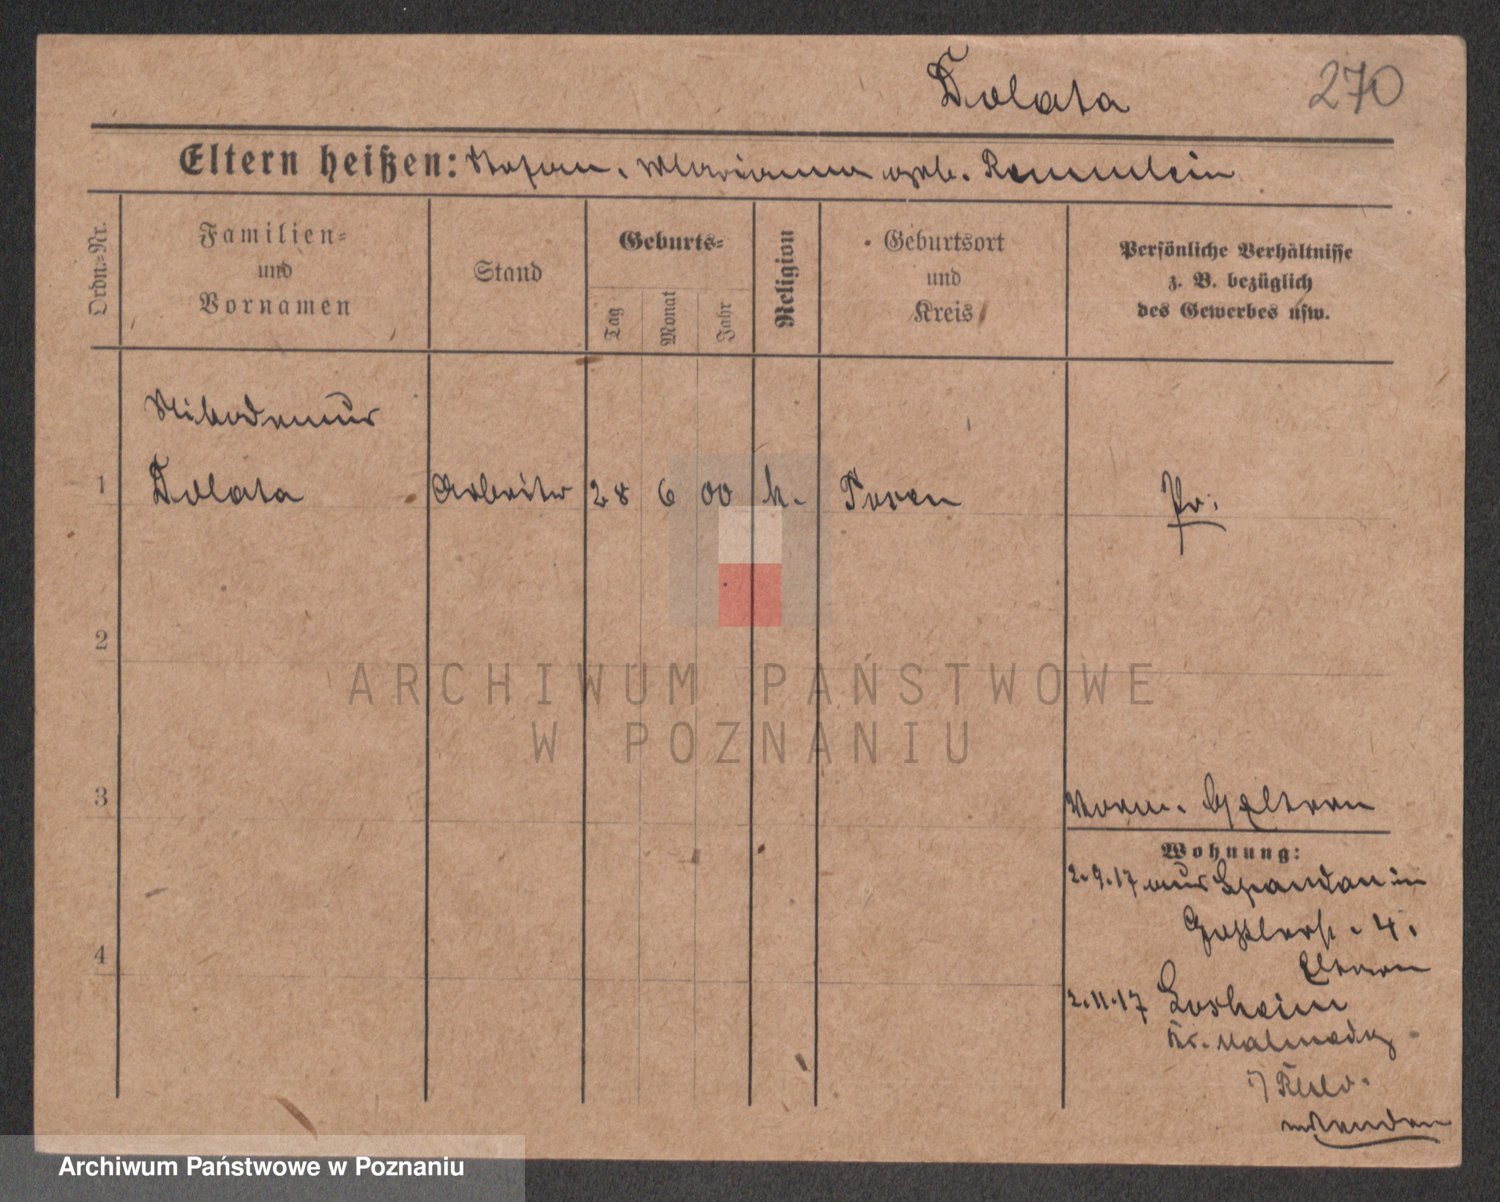 Dolata
270
Eltern heißen: Stefan. Marianna geb. Remmlein
Ordn.-Nr.
Familien-
und
Vornamen
Stand
Geburts-
Tag
Monat
Jahr
Religion
Geburtsort
und
Kreis
Persönliche Verhältnisse
z. B. bezüglich
des Gewerbes usw.
Nikodemus
1 Dolata Arbeiter 28 6 00 k. Posen Pr.
2
3
Eltern
Wohnung:
2.9.17 aus Spandau in
4.
4
Eltern
2.11.17 Losheim
Kr. Malmedy
ARCHIWUM PAŃSTWOWE
W POZNANIU
Archiwum Państwowe w Poznaniu